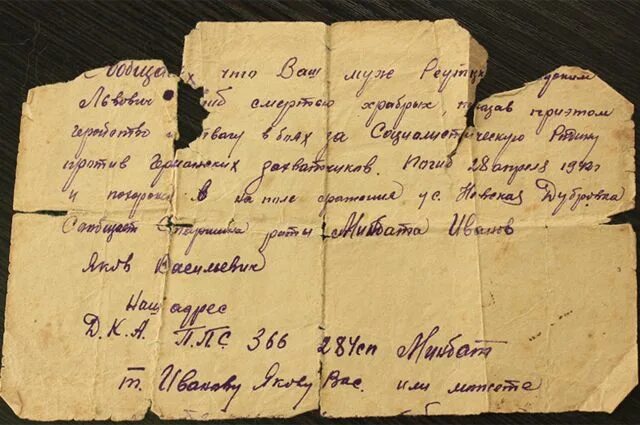 Сообщаем что Ваш муж Реутск
Львович смертью храбрых, показав приэтом
геройство и отвагу в боях за Социалистическую Родину
против Германских захватчиков. Погиб 28 апреля 1942г
и похоронен в на поле сражения у с. Невская Дубровка
Сообщает Старшина роты Минбата Иванов
Яков Васильевич
Наш адрес
Д.К.А. П.П.С. 366 284сп Минбат
т. Иванову Якову Вас. или можете